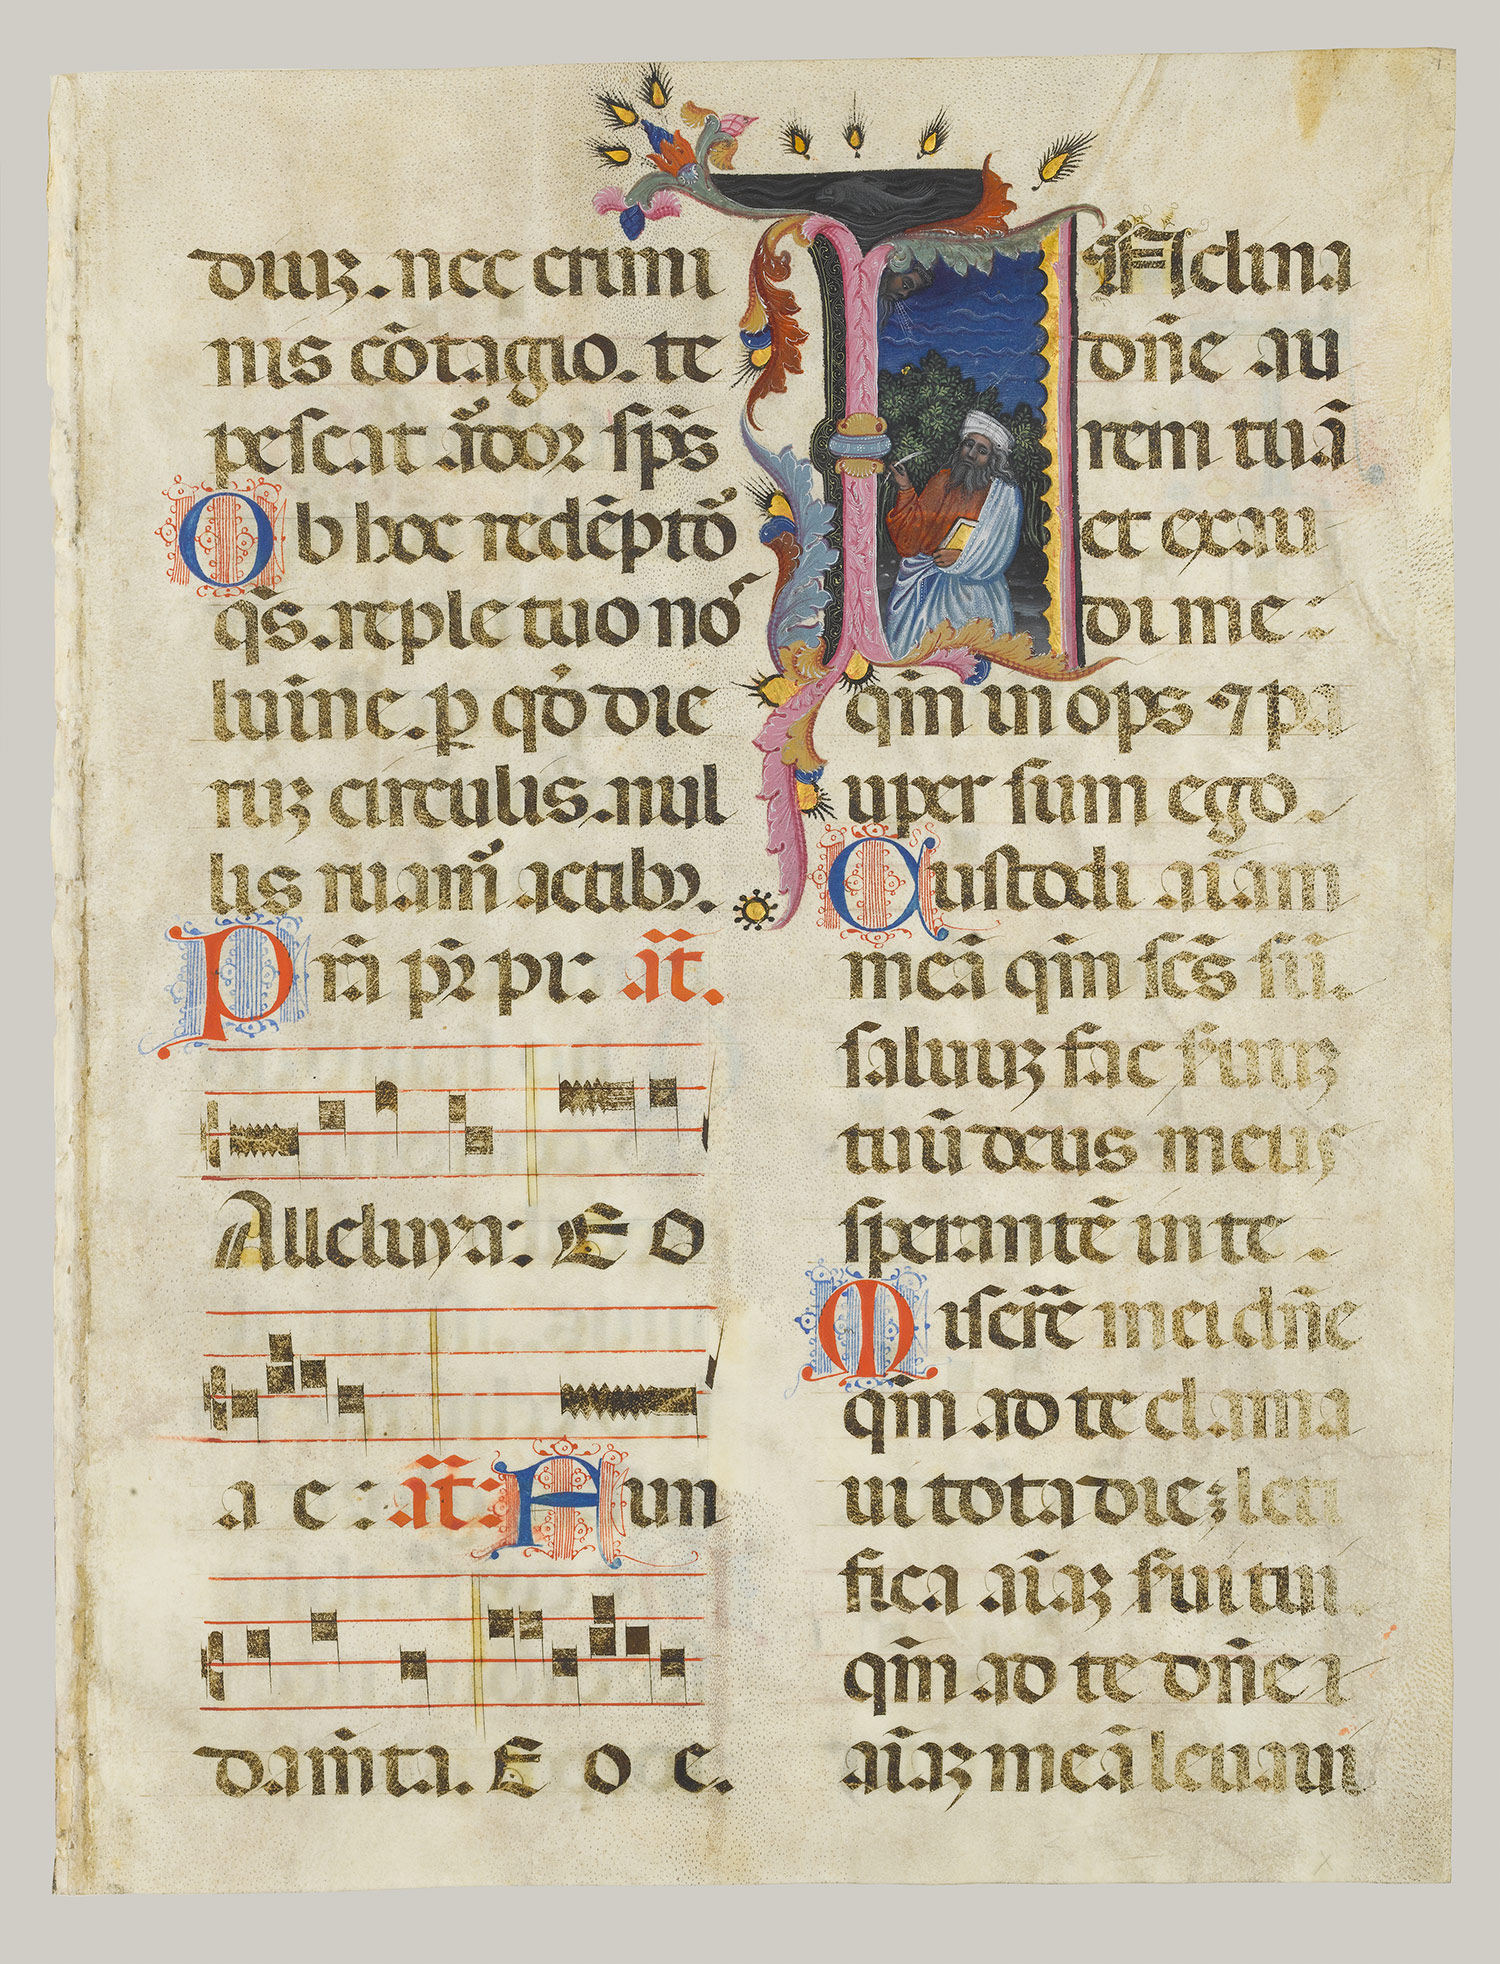 diuꝫ. nec crimi
nis cōtagio. te
pescat ādor sp̄s
Ob hoc redēptō
q̄s. reple tuo nō
lum̄ine. ꝑ qđ die
ruꝫ circulis. nul
lis ruam̄ actibꝫ.
Prā pr̄ pr: at̄.
Alleluya: E O
a e : at̄: Aun
dam̄ta. E o e.
INclina
dn̄e au
rem tuā
et exau
di me:
qm̄ inops ⁊ pa
uper sum ego.
Custodi aīam
meā qm̄ sc̄s sū.
saluuꝫ fac s̄uuꝫ
tuū deus meus
sperantē in te.
Miserē mei dn̄e
qm̄ ad te clama
ui tota die; leti
fica aīaꝫ s̄ui tui
qm̄ ad te dn̄e
aīaꝫ meā leuaui